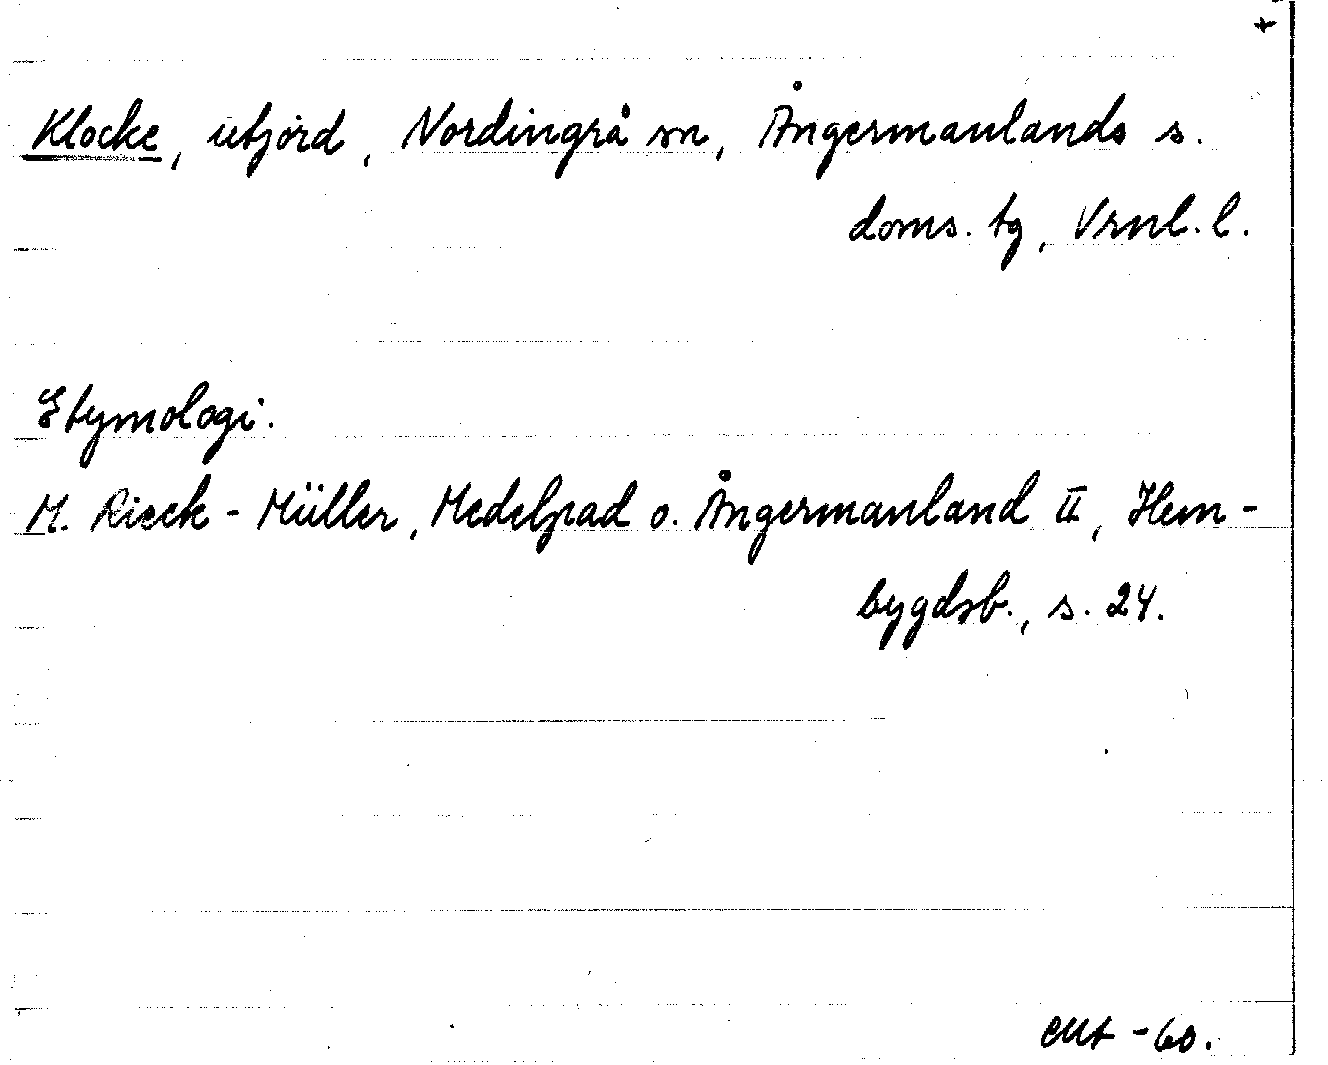 +
Klocke, utjord, Nordingrå sn, Ångermanlands s.
doms. tg, Vrnl. l.
Etymologi.
M. Rieck-Müller, Medelpad o. Ångermanland II, Hem-
bygdsb., s. 24.
-60.